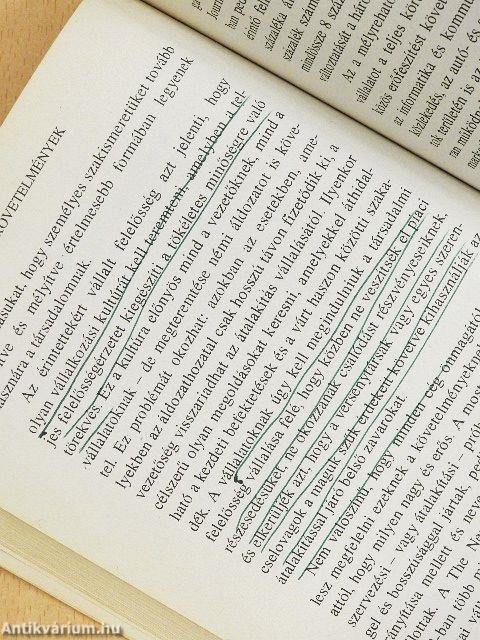 KÖVETELMÉNYEK
hogy személyes szakismereteiket tovább
és mélyítve értelmesebb formában legyenek
a társadalomnak.
Az érintettekért vállalt felelősség azt jelenti, hogy
olyan vállalkozási kultúrát kell teremteni, amelyben a tel-
jes felelősségérzetet kiegészíti a tökéletes minőségre való
törekvés. Ez a kultúra előnyös mind a vezetőknek, mind a
vállalatoknak – de megteremtése némi áldozatot is köve-
tel. Ez problémát okozhat: azokban az esetekben, ame-
lyekben az áldozathozatal csak hosszú távon fizetődik ki, a
vezetőség visszariadhat az átalakítás vállalásától. Ilyenkor
célszerű olyan megoldásokat keresni, amelyekkel áthidal-
ható a kezdeti befektetések és a várt haszon közötti szaka-
dék. A vállalatoknak úgy kell megindulniuk a társadalmi
felelősség vállalása felé, hogy közben ne veszítsék el piaci
részesedésüket, ne okozzanak csalódást részvényeseiknek,
és elkerüljék azt, hogy a versenytársak vagy egyes szeren-
cselovagok a maguk szűk érdekeit követve kihasználják az
átalakítással járó belső zavarokat.
Nem valószínű, hogy minden cég önmagától
lesz megfelelni ezeknek a követelményeknek
attól, hogy milyen nagy és erős. A most
szervezési – vagy átalakítási –
és bosszúsággal jártak,
mellett és
A The
több
százaléka
százalék
mindössze 8
változtatását a
Az a mélyreható
vállalatot a teljes
közös erőfeszítést
az informatika és
közlekedés, az autó- és
területén is az
Antikvárium.hu